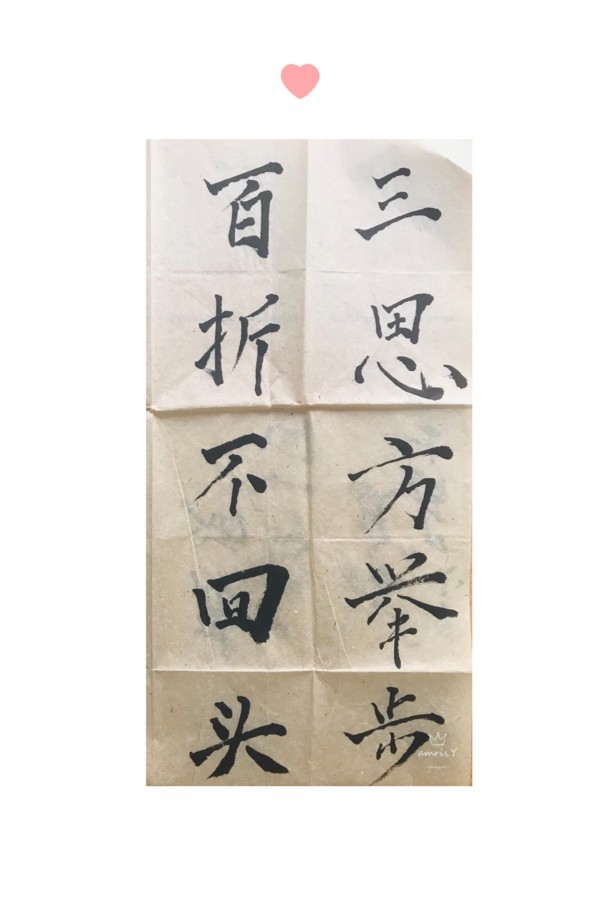 三思方举步
百折不回头
amoris Y